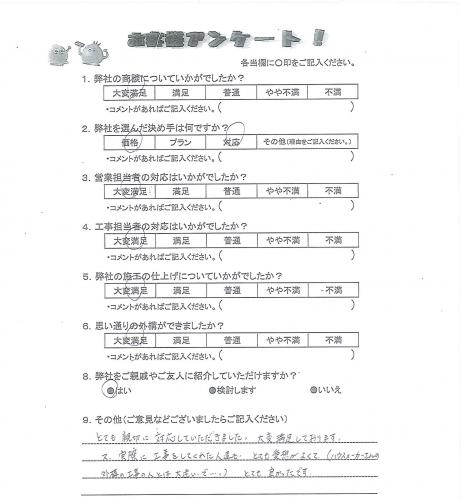 お客様アンケート!
各当欄に○印をご記入ください。
1. 弊社の商談についていかがでしたか?
大変満足 満足 普通 やや不満 不満
・コメントがあればご記入ください。( )
2. 弊社を選んだ決め手は何ですか?
価格 プラン 対応 その他(理由をご記入ください。)
・コメントがあればご記入ください。( )
3. 営業担当者の対応はいかがでしたか?
大変満足 満足 普通 やや不満 不満
・コメントがあればご記入ください。( )
4. 工事担当者の対応はいかがでしたか?
大変満足 満足 普通 やや不満 不満
・コメントがあればご記入ください。( )
5. 弊社の施工の仕上げについていかがでしたか?
大変満足 満足 普通 やや不満 不満
・コメントがあればご記入ください。( )
6. 思い通りの外構ができましたか?
大変満足 満足 普通 やや不満 不満
・コメントがあればご記入ください。( )
8. 弊社をご親戚やご友人に紹介していただけますか?
●はい ●検討します ●いいえ
9. その他(ご意見などございましたらご記入ください)
とても親切に対応していただきました。大変満足しております。
又、実際に工事をしてくれた人達も、とても愛想がよくて(ハウスメーカーさんの
外構の工事の人とは大違いで…) とても良かったです。